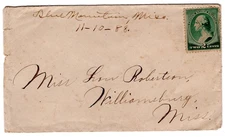 Blue Mountain, Miss.
11-10-88.
Miss Lon Robertson,
Williamsburg,
Miss.